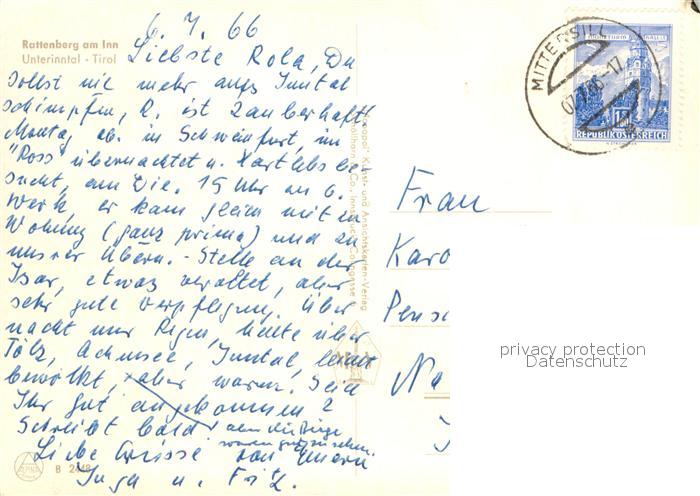 Rattenberg am Inn
Unterinntal - Tirol
6. 7. 66
Liebste Rola, Du
sollst nie mehr aufs Inntal
schimpfen, R. ist zauberhaft!
Montag ab. in Schweinfurt, im
"Ross" übernachtet u. Hartlebs be-
sucht, am Die. 15 Uhr an G.
werk, er kam gleich mit in
Wohnung (ganz prima) und zu
unsrer Übern. - Stelle an der
Isar, etwas veraltet, aber
sehr gute Verpflegung. Über
nacht nur Regen, heute über
Tölz, Achensee, Inntal, leider
bewölkt, aber warm. Seid
Ihr gut angekommen?
Schreibt bald!
aber die Berge
waren gut zu sehen.
Liebe Grüsse von Euern
Inga u. Fritz.
B 2448
Frau
Karo
Pensi
Na
MITTERSILL
07.7.66-17
REPUBLIK ÖSTERREICH
privacy protection
Datenschutz